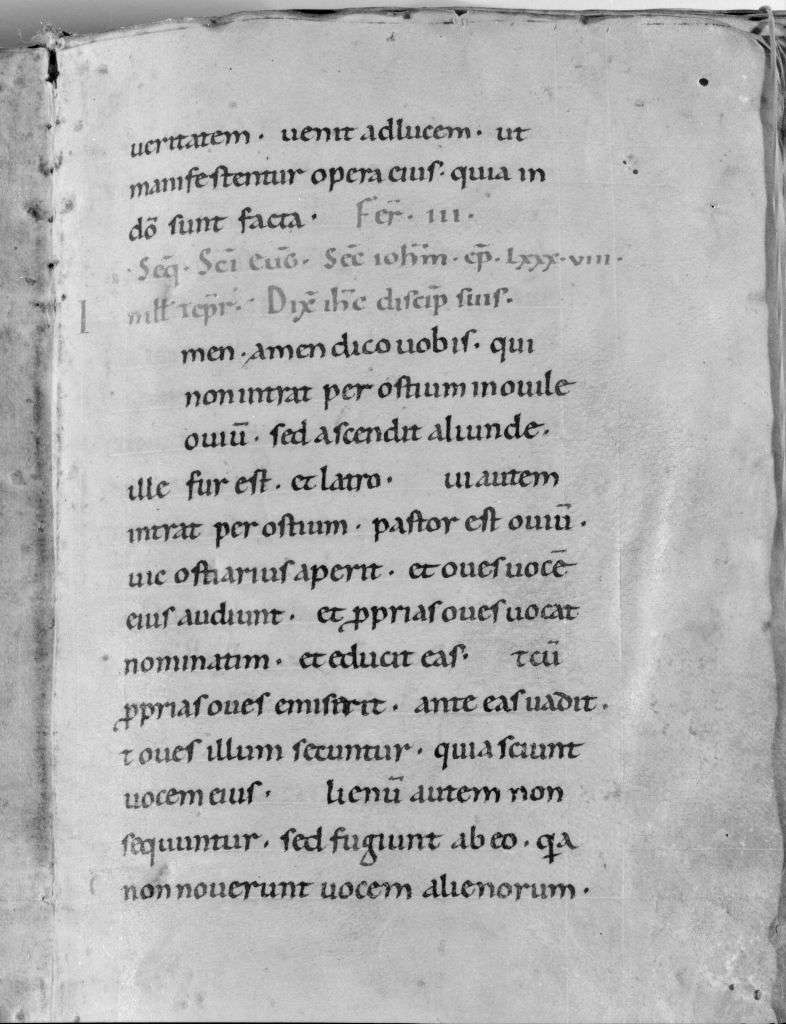 ueritatem · uenit adlucem · ut
manifestentur opera eius · quia in
dō sunt facta · Fer̄ · III ·
· Seq̄ · Scī euḡ · Sec̄ ioh̄m · cp̄ · Lxxx · viii ·
I n ill tēpr̄ · Dix̄ ih̄c discip̄ suis ·
men · amen dico uobis · qui
non intrat per ostium in ouile
ouiū · sed ascendit aliunde ·
ille fur est · et latro · ui autem
intrat per ostium · pastor est ouiū ·
uic ostiarius aperit · et oues uocē
eius audiunt · et ꝓprias oues uocat
nominatim · et educit eas · t cū
ꝓprias oues emiserit · ante eas uadit ·
t oues illum secuntur · quia sciunt
uocem eius · lienū autem non
sequuntur · sed fugiunt ab eo · qa
non nouerunt uocem alienorum ·